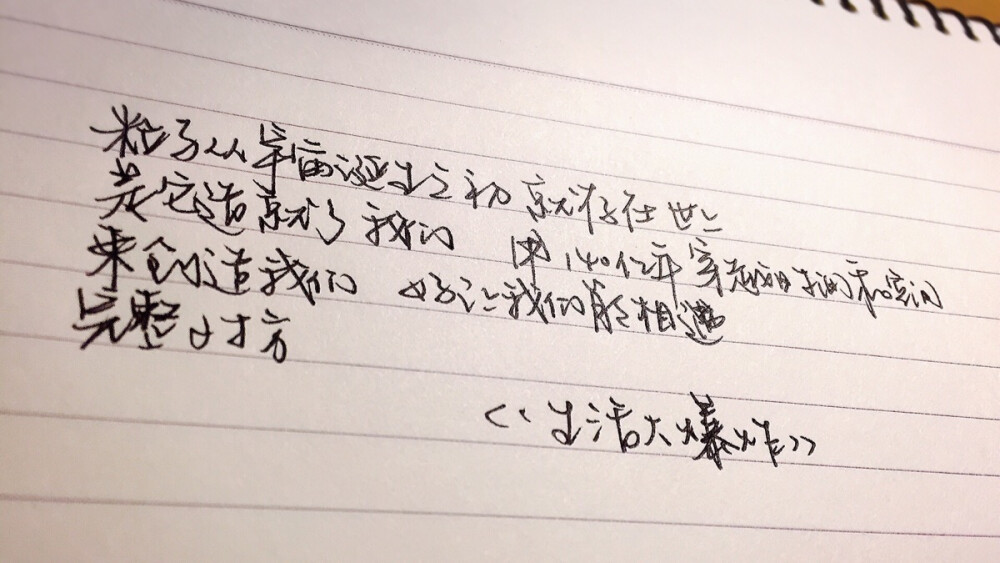 粒子从宇宙诞生之初就存在世上
是它造就了我们 用140亿年穿越时间和空间
来创造我们 好让我们能相遇
完整对方
《生活大爆炸》